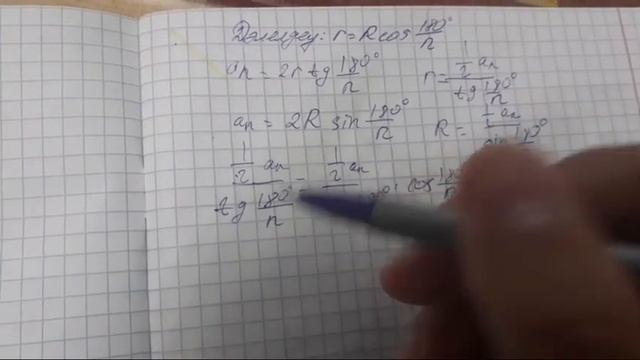 Дәлелдеу: r = R cos 180°/n
aₙ = 2r tg 180°/n   r = ½ aₙ / tg 180°/n
aₙ = 2R sin 180°/n   R = ½ aₙ / sin 180°
½ aₙ / tg 180°/n = ½ aₙ / cos 180°/n